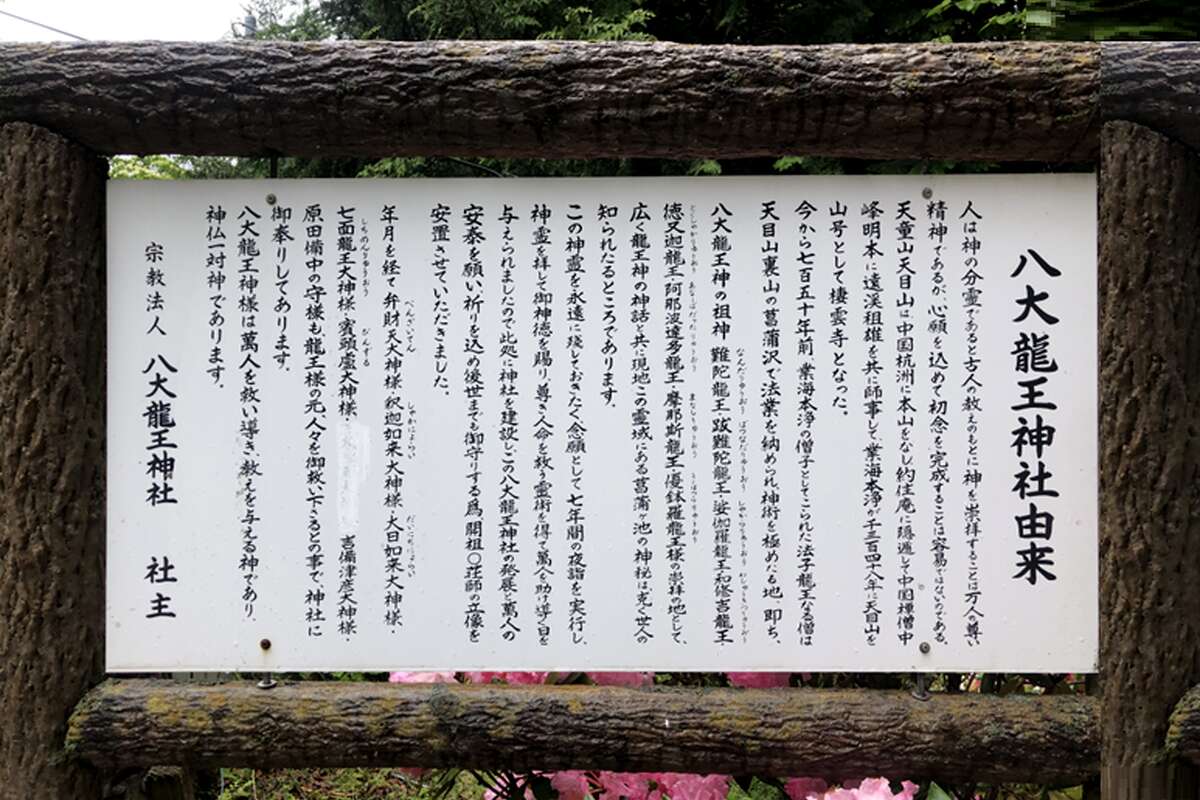 八大龍王神社由来
人は神の分霊であると古人の教えのもとに神を崇拝することは万人の尊い
精神であるが、心願を込めて初念を完成することは容易ではないのである。
天童山天目山は、中国杭洲に本山をなし約住庵に隠遁して中国禅僧中
峰明本に遠渓祖雄を共に師事して、業海本浄が千三百四十八年に天目山を
山号として棲雲寺となった。
今から七百五十年前、業海本浄の僧子としてこられた法子龍王なる僧は
天目山裏山の菖蒲沢で法業を納められ、神術を極めたる地、即ち、
八大龍王神の祖神 難陀龍王・跋難陀龍王・娑伽羅龍王・和修吉龍王
徳叉迦龍王・阿那波達多龍王・摩那斯龍王・優鉢羅龍王様の崇拝の地として、
広く龍王神の神話と共に現地この霊域にある菖蒲ヶ池の神秘は、先人世人の
知られたるところであります。
この神霊を永遠に残しておきたく念願として七年間の夜詣を実行し、
神霊を拝して御神徳を賜り、尊き人命を救う霊術を得て萬人を助け導く日を
与えられましたので此処に神社を建設し、この八大龍王神社の発展と萬人の
安泰を願い、祈りを込め後世までも御守りする爲、開祖〇荘師の立像を
安置させていただきました。
年月を経て弁財天大神様・釈迦如来大神様・大日如来大神様・
七面龍王大神様・賓頭盧大神様・ 吉備津彦大神様・
原田備中の守様も龍王様の元、人々を御救い下さるとの事で、神社に
御奉りしてあります。
八大龍王神様は萬人を救い導き、教えを与える神であり、
神仏一対神であります。
宗教法人 八大龍王神社 社主